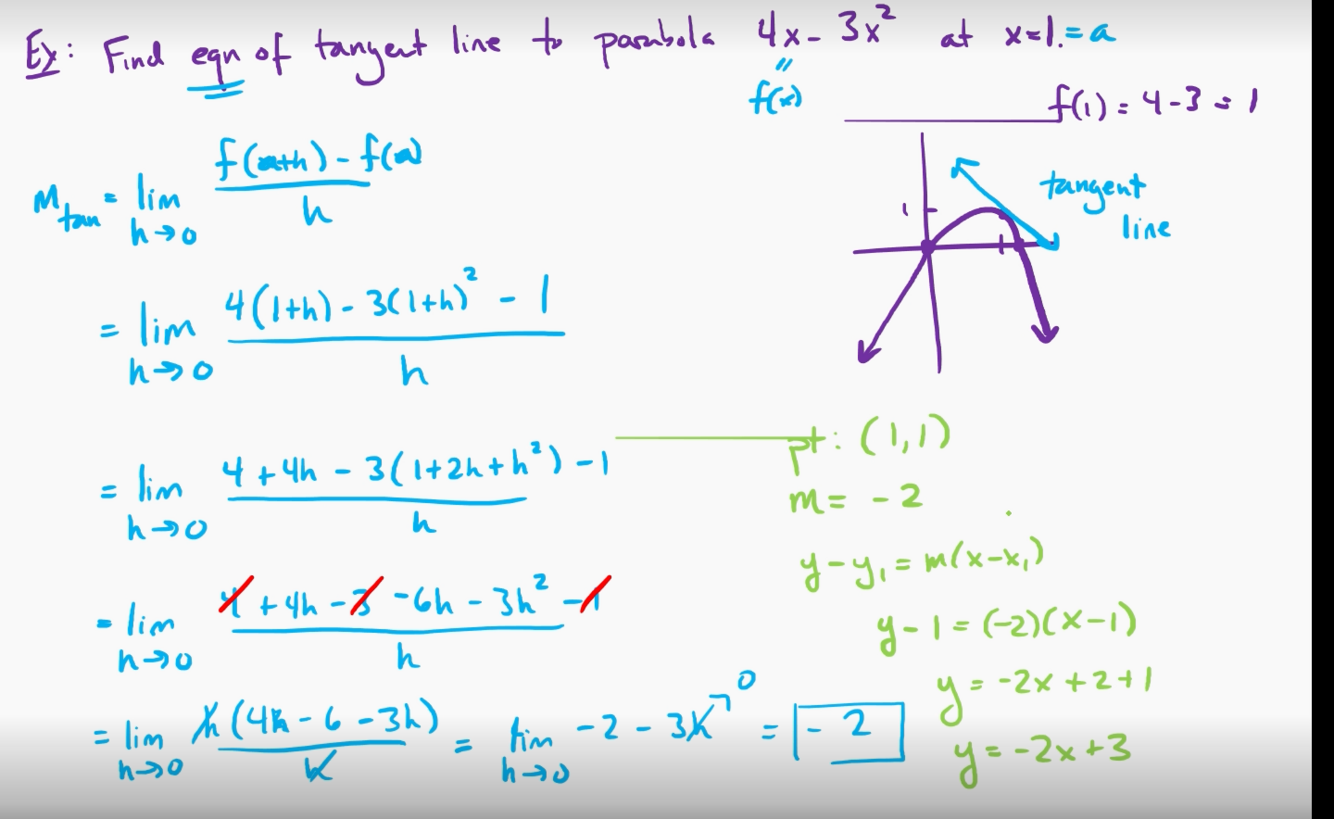 Ex: Find eqn of tangent line to parabola 4x - 3x² at x=1. = a
"
f(x)
f(1) = 4-3 = 1
M_tan = lim_{h→0} (f(a+h) - f(a))/h
= lim_{h→0} (4(1+h) - 3(1+h)² - 1)/h
= lim_{h→0} (4 + 4h - 3(1+2h+h²) - 1)/h
= lim_{h→0} (4 + 4h - 3 - 6h - 3h² - 1)/h
= lim_{h→0} h(4 - 6 - 3h)/h = lim_{h→0} -2 - 3h→0 = -2
1
tangent
line
pt: (1,1)
m = -2
y - y₁ = m(x-x₁)
y - 1 = (-2)(x-1)
y = -2x + 2 + 1
y = -2x + 3